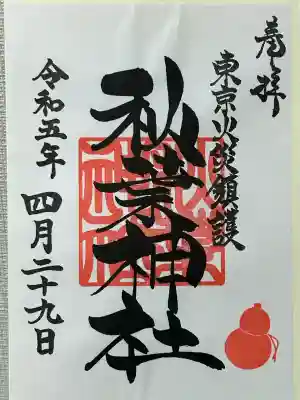 奉拝
東京火災鎮護
秋葉神社
令和五年四月二十九日